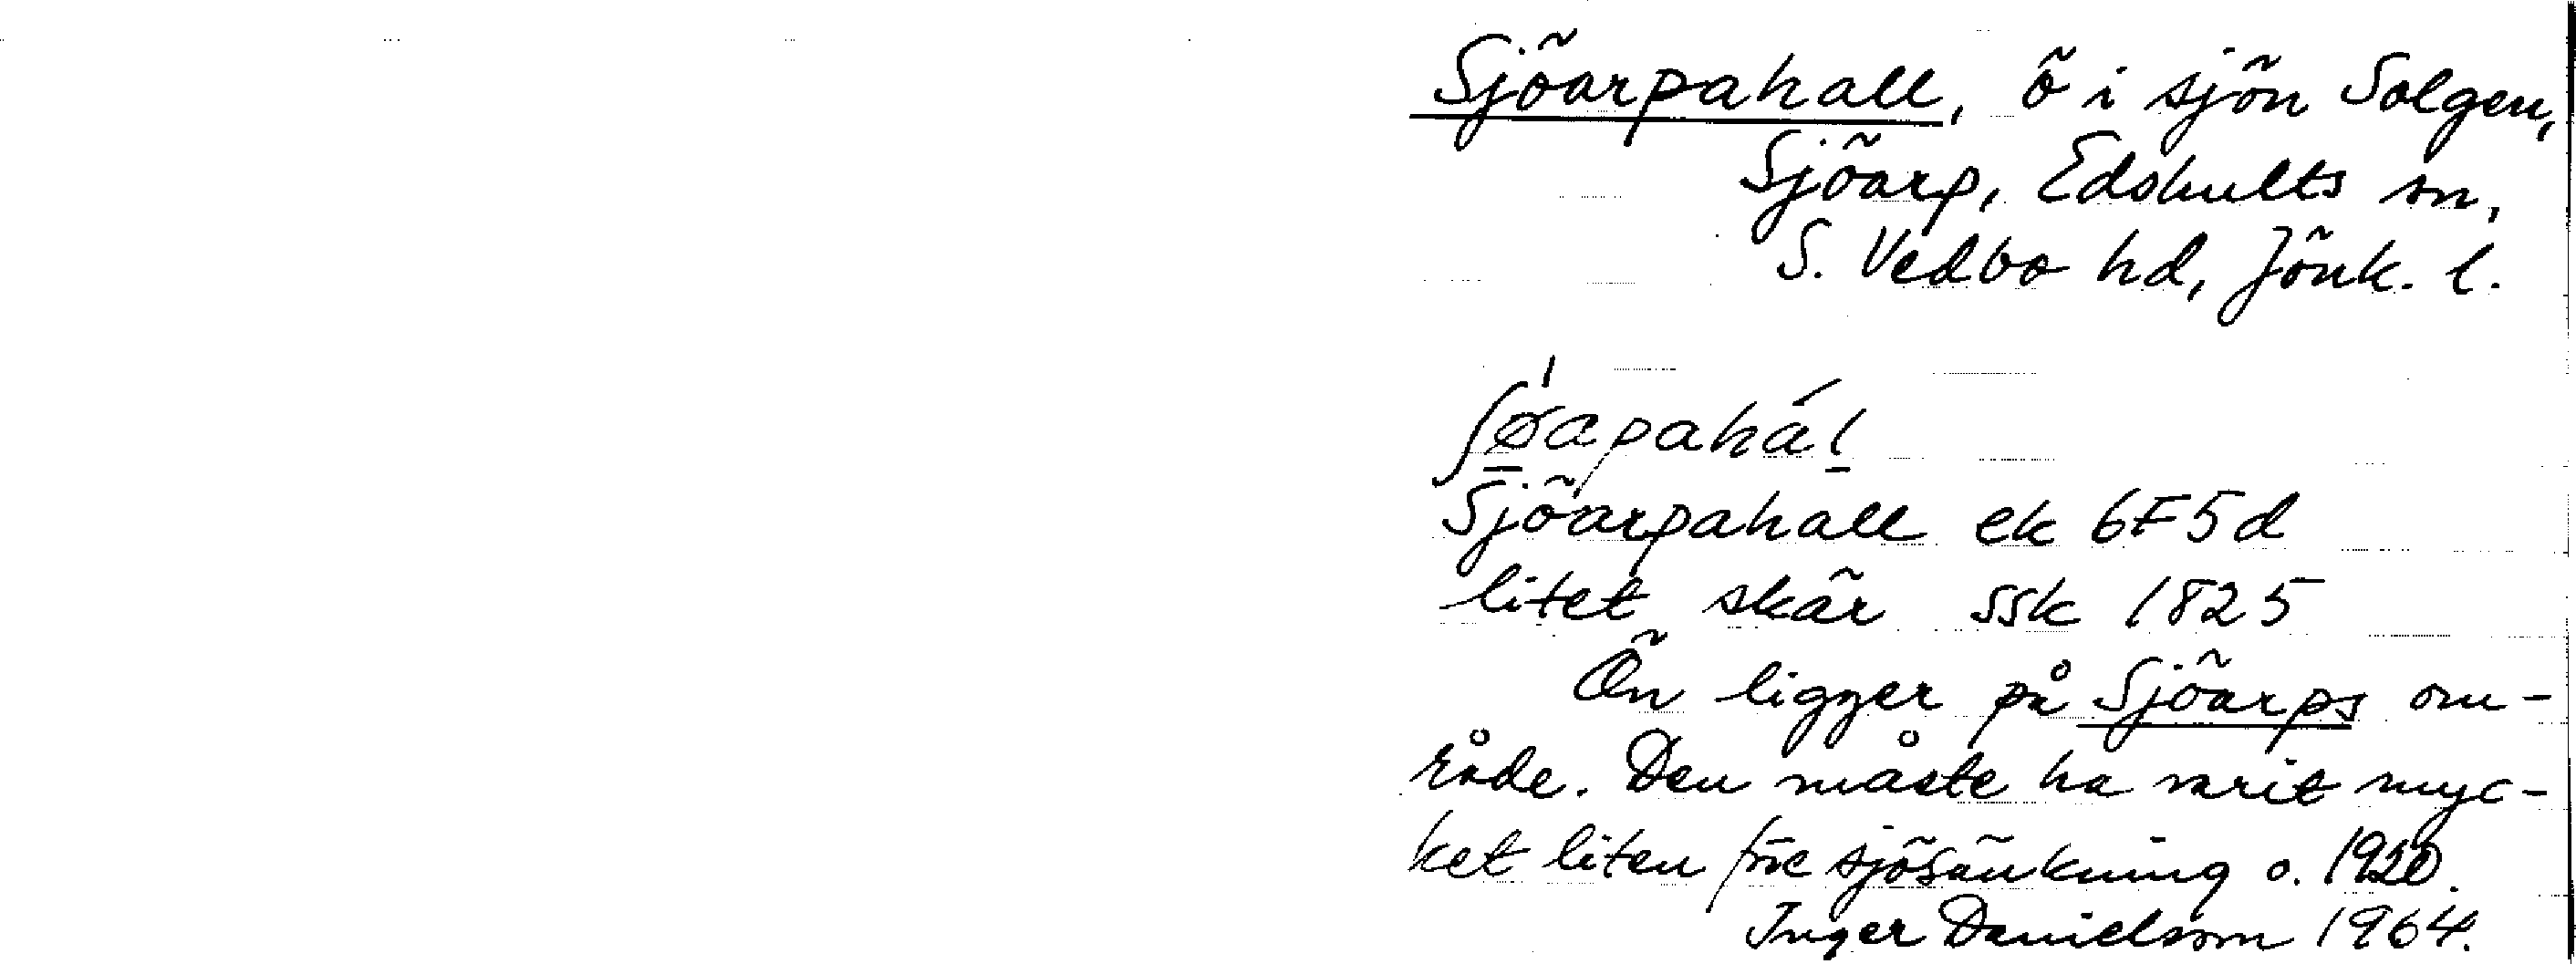 Sjöarpahall, ö i sjön Solgen,
Sjöarp, Edshults sn,
S. Vedbo hd, Jönk. l.
Sjöarpahall ek 6F5d
litet skär ssk 1825
Ön ligger på Sjöarps om-
råde. Den måste ha varit myc-
ket liten före sjösänkning o. 1920.
Inger Danielsson 1964.